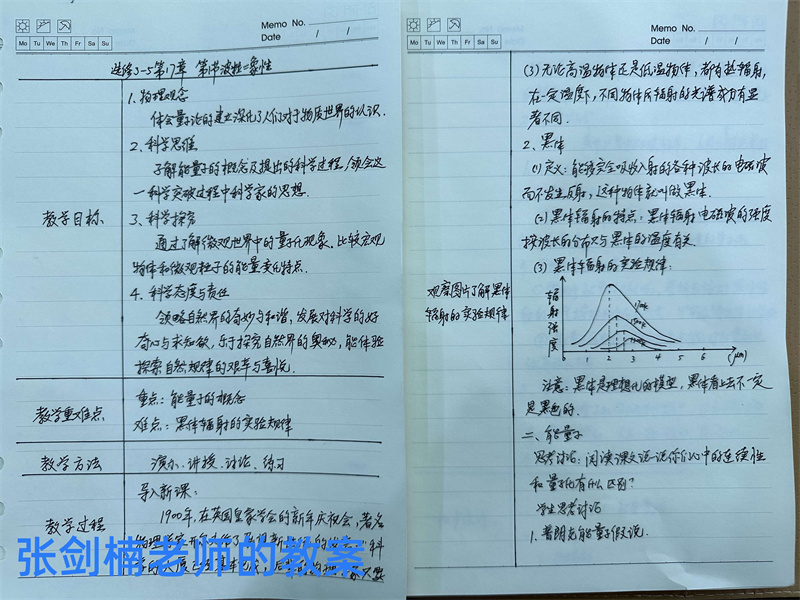 Memo No.
Date / /
Mo Tu We Th Fr Sa Su
选修3-5第17章 第1节波粒二象性
教学目标
1、物理观念
体会量子论的建立深化了人们对于物质世界的认识.
2、科学思维
了解能量子的概念及提出的科学过程,领会这
一科学突破过程中科学家的思想.
3、科学探究
通过了解微观世界中的量子化现象.比较宏观
物体和微观粒子的能量变化特点.
4、科学态度与责任
领略自然界的奇妙与和谐,发展对科学的好
奇心与求知欲,乐于探究自然界的奥秘,能体验
探索自然规律的艰辛与喜悦.
教学重难点
重点:能量子的概念
难点:黑体辐射的实验规律
教学方法
演示、讲授、讨论、练习
教学过程
导入新课:
1900年,在英国皇家学会的新年庆祝会,著名
物理学家
张剑楠老师的教案
Memo No.
Date / /
Mo Tu We Th Fr Sa Su
(3)无论高温物体还是低温物体,都有热辐射,
在一定温度下,不同物体所辐射的光谱成分有显
著不同.
2、黑体
(1)定义:能够完全吸收入射的各种波长的电磁波
而不发生反射,这种物体就叫做黑体.
(2)黑体辐射的特点:黑体辐射电磁波的强度
按波长的分布只与黑体的温度有关.
(3)黑体辐射的实验规律:
观察图片了解黑体
辐射的实验规律
辐射强度
0 1 2 3 4 5 6 (μm)
注意:黑体是理想化的模型,黑体看上去不一定
是黑色的.
二、能量子
思考讨论:阅读课文说一说你们心中的连续性
和量子化有什么区别?
学生思考讨论
1、普朗克能量子假说.